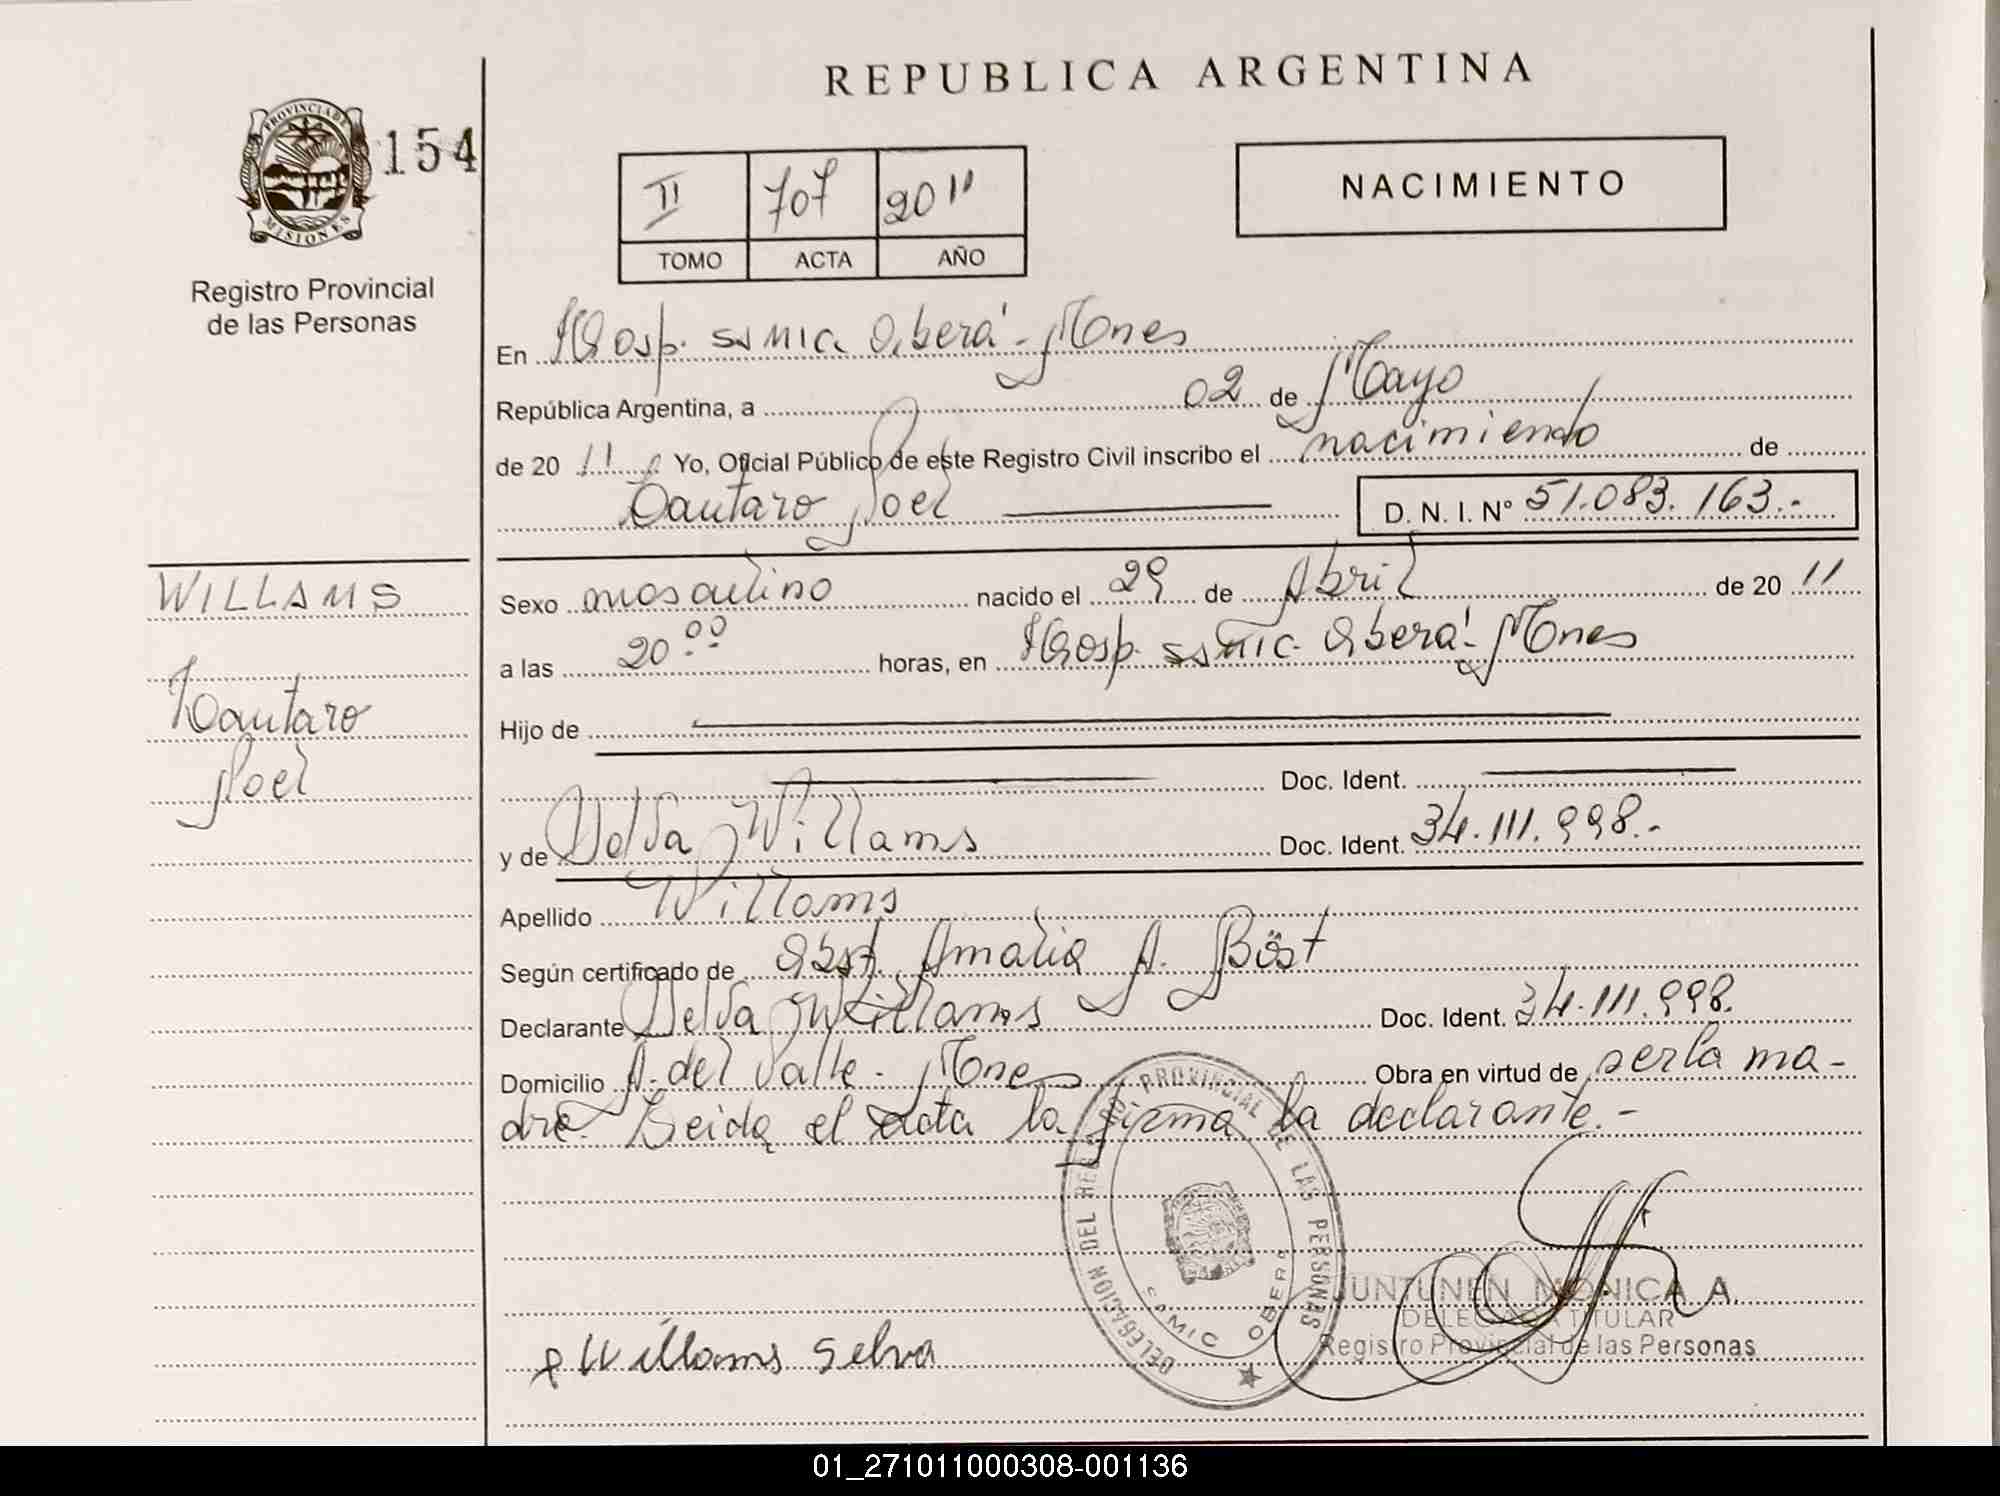 REPUBLICA ARGENTINA
PROVINCIA DE
MISIONES
154
Registro Provincial
de las Personas
II 707 2011
TOMO ACTA AÑO
NACIMIENTO
En Hosp. SAMIC Oberá - Mnes
República Argentina, a 02 de Mayo
de 20 11 Yo, Oficial Público de este Registro Civil inscribo el nacimiento de
Lautaro Joel D. N. I. Nº 51.083.163.-
WILLAMS
Lautaro
Joel
Sexo masculino nacido el 29 de Abril de 20 11
a las 20:00 horas, en Hosp. SAMIC. Oberá - Mnes
Hijo de
Doc. Ident.
y de Selva Willams Doc. Ident. 34.111.998.-
Apellido Willams
Según certificado de Obst. Amalia A. Böst
Declarante Selva Willams Doc. Ident. 34.111.998.
Domicilio A. del Valle - Mnes Obra en virtud de ser la ma-
dre. Leida el acta la firma la declarante.-
DELEGACION DEL REG. PROVINCIAL DE LAS PERSONAS
SAMIC OBERA
JUNTUNEN MONICA A.
DELEGADA TITULAR
Registro Provincial de las Personas
Willams Selva
01_271011000308-001136